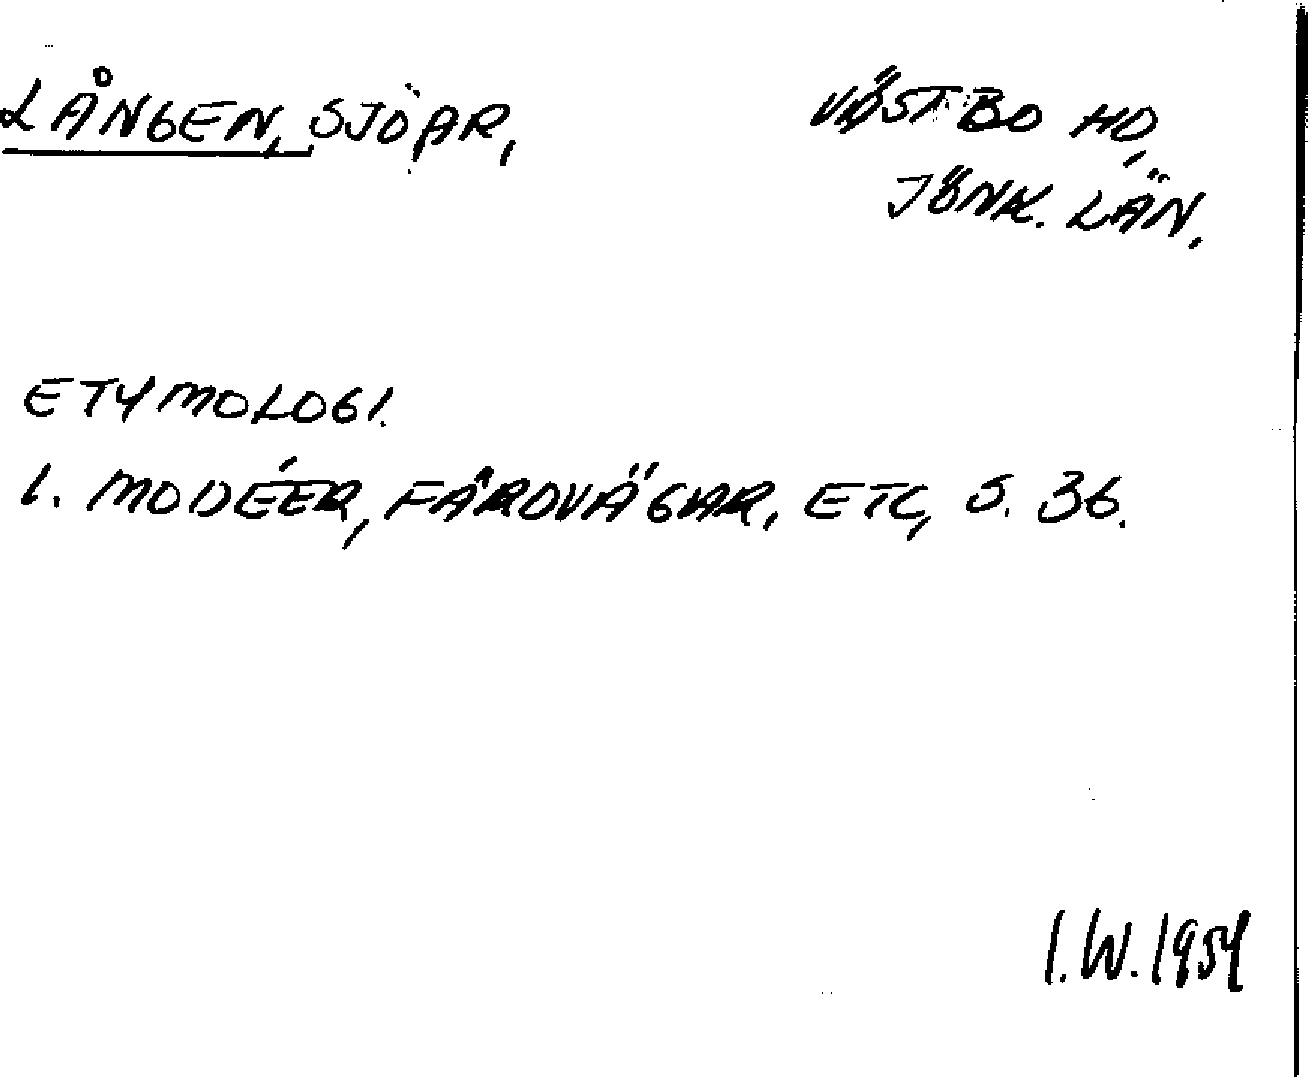 LÅNGEN, SJÖAR,
VÄSTBO HD,
JÖNK. LÄN.
ETYMOLOGI.
I. MODÉER, FÄRDVÄGAR, ETC, S. 36.
I.W. 1954